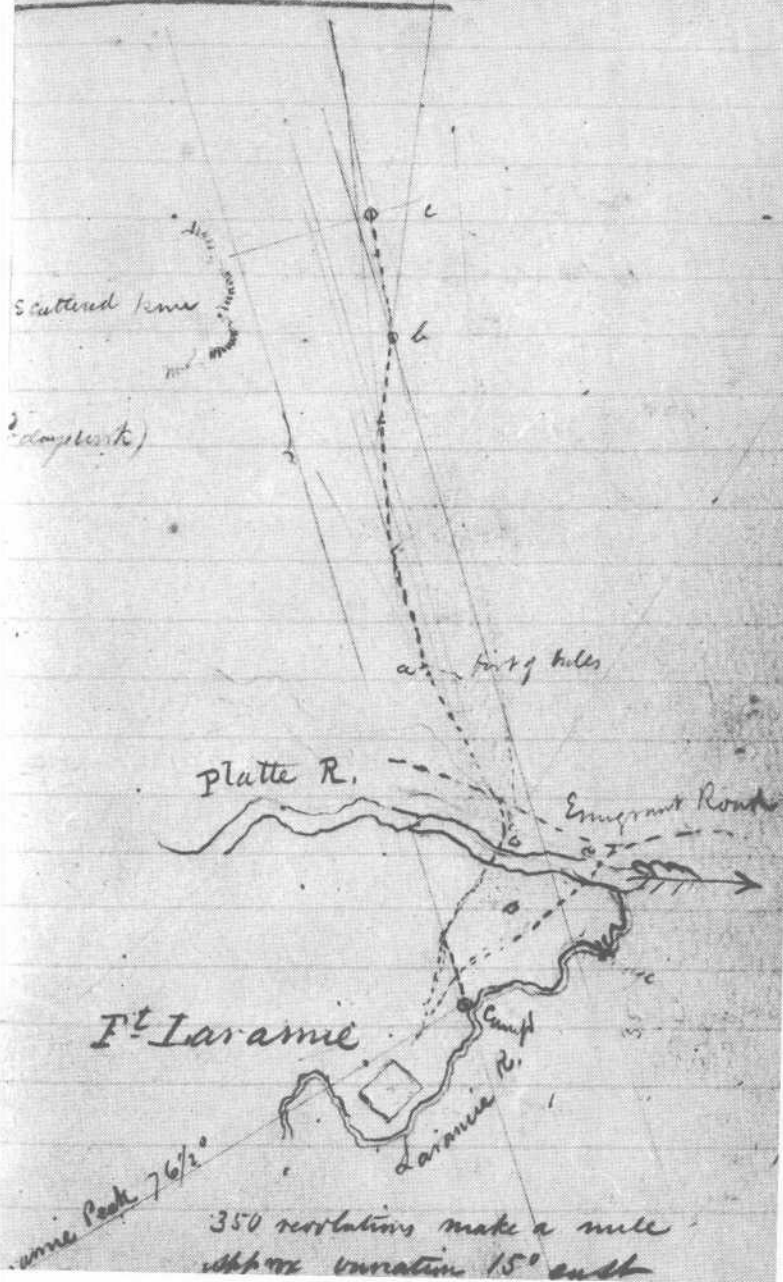 c
scattered
b
a
Platte R.
Emigrant Road
Camp
Ft Laramie
Laramie R.
Peak 76½°
350 revolutions make a mile
approx variation 15° east